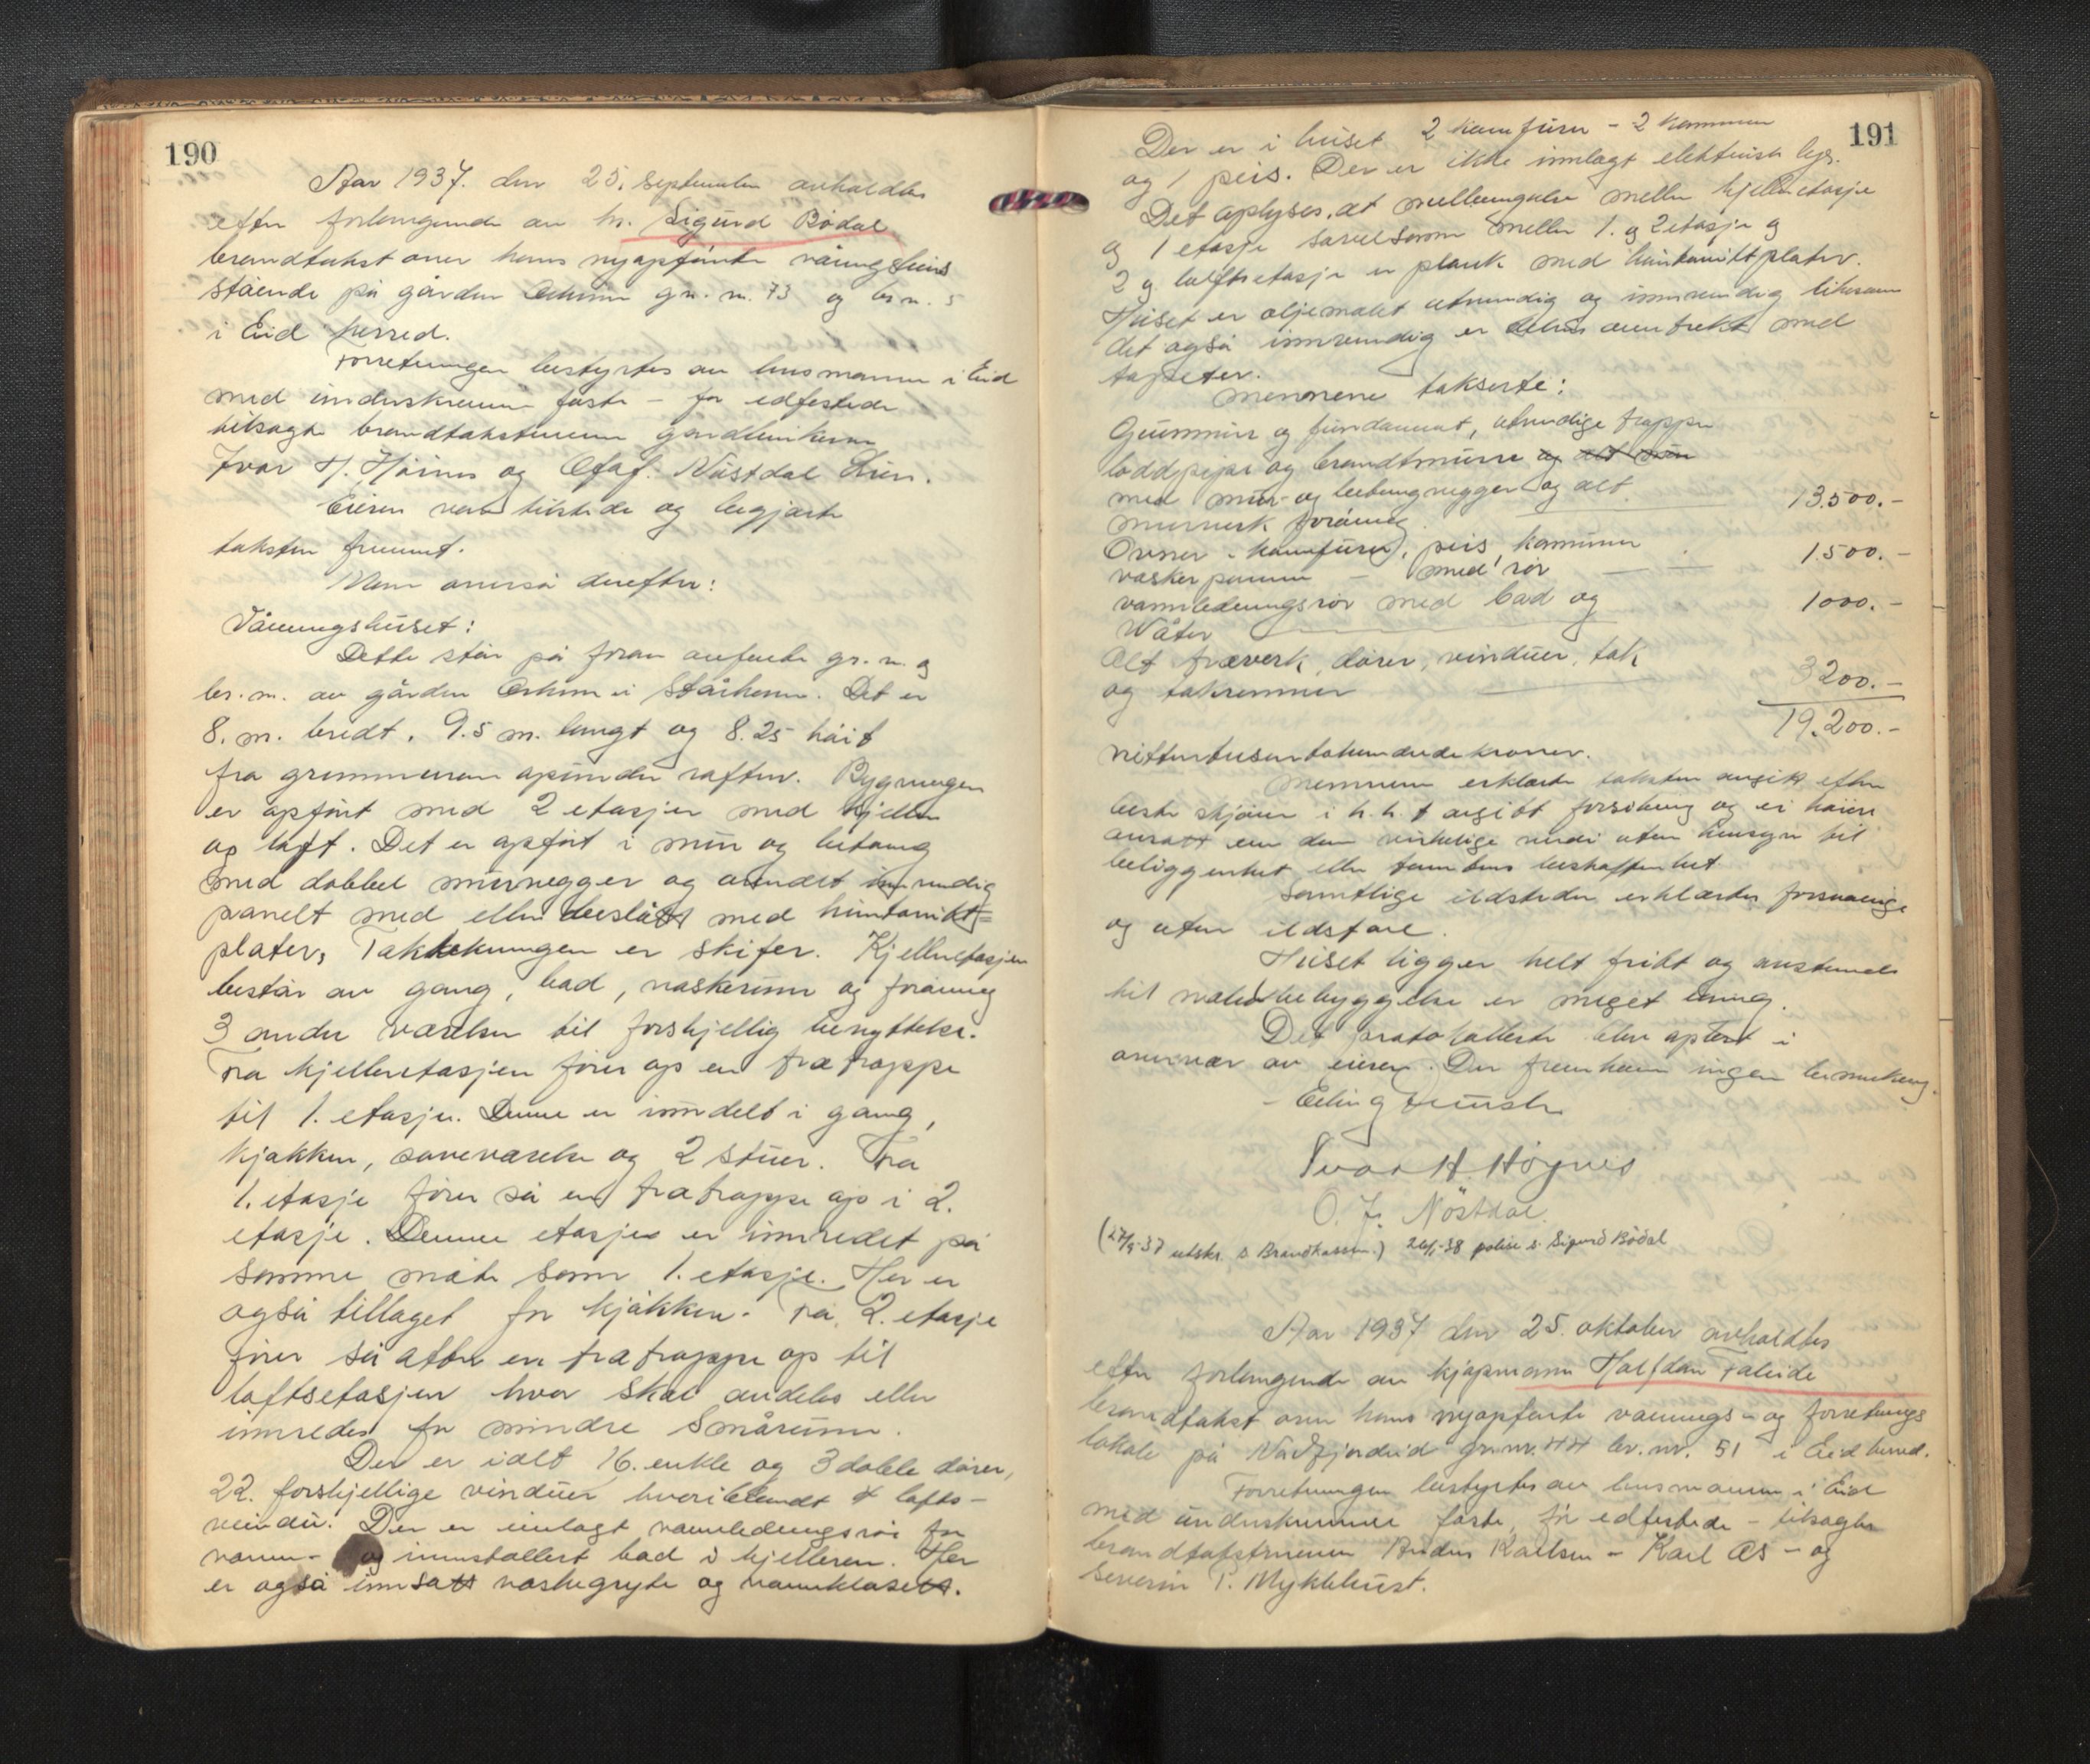 190
Aar 1937. den 25. september avholdtes
efter forlangende av hr. Sigurd Bødal
brandtakst over hans nyopførte våningshus
stående på gården gr. n. 73 og br. n. 5
i Eid herred.
Forretningen bestyrtes av lensmannen i Eid
med underskrevne faste - før edfestede
tilsagte brandtakstmenn gardbrukerne
Ivar H. Høines og Olaf J. Nustdal
Eieren var tilstede og begjærte
taksten fremmet.
Man anerså derefter:
Våningshuset:
Dette står på foran anførte gr. n. og
br. n. av gården i Stårheim. Det er
8. m. bredt, 9.5 m. langt og 8.25 høit
fra grunnmuren opunder raftene. Bygningen
er opført med 2 etasjer med kjeller
og loft. Det er opført i mur og betong
med dobbel murvegger og annet innvendig
panelt med eller beslått med huntonitt-
plater, Taktekningen er skifer. Kjelleretasjen
består av gang, bad, vaskerum og forøvrig
3 andre værelser til forskjellig benyttelse.
Fra kjelleretasjen fører op en tratrappe
til 1. etasje. Denne er inndelt i gang,
kjøkken, soveværelse og 2 stuer. Fra
1. etasje fører så en tratrappe op i 2.
etasje. Denne etasjes er innredet på
samme måte som 1. etasje. Her er
også tillaget for kjøkken. Fra 2. etasje
fører så atter en tratrappe op til
loftsetasjen hvor skal avdeles eller
innredes for mindre smårum.
Der er ialt 16. enkle og 3 doble dører,
22. forskjellige vinduer hvoriblandt 4 lofts-
vindu. Der er innlagt vannledningsrør for
vann- og innstallert bad i kjelleren. Her
er også innsatt vaskegryte og vannklosett.
191
Der er i huset 2 komfurer - 2 kaminer
og 1 peis. Der er ikke innlagt elektrisk lys.
Det oplyses, at mellemgulve mellem kjelleretasje
og 1 etasje såvelsom mellem 1. og 2 etasje og
2 og loftsetasje er plank med huntonittplater.
Huset er oljemalet utvendig og innvendig likesom
det også innvendig er delvis overtrekt med
tapeter.
Mennene takserte:
Grunnmur og fundament, utvendige trapper
loddpipe og brandtmurer og alt mur
med mur- og betongvegger og alt
murverk forøvrig 13.500.-
Ovner - komfurer, peis, kaminer
vaskerpanne - med rør 1.500.-
vannledningsrør med bad og 1000.-
Wåter
Alt træverk, dører, vinduer, tak
og takrenner 3200.-
19.200.-
nittentusentohundrede kroner.
Mennene erklærte taksten avgitt efter
beste skjønn i h. h. t avgitt forsikring og ei høiere
ansatt enn den virkelige verdi uten hensyn til
beliggenhet eller tomtens beskaffenhet.
Samtlige ildsteder erklærtes forsvarlige
og uten ildsfare.
Huset ligger helt fritt og avstanden
til nabobebyggelse er meget lang.
Det protokollerte blev oplest i
overvær av eieren. Der fremkom ingen bemerkning.
Erling
Ivar H. Høynes
O. J. Nöstdal.
(27/9-37 utskr. s. Brandkassen.) 26/1-38 polise s. Sigurd Bödal
Aar 1937 den 25. oktober avholdtes
efter forlangende av kjøpmann Halfdan Faleide
brandtakst over hans nyopførte vånings- og forretnings
lokale på Nordfjordeid gr. nr. 44 br. nr. 51 i Eid herred.
Forretningen bestyrtes av lensmannen i Eid
med underskrevne faste, før edfestede - tilsagte
brandtakstmenn Anders Karlsen - Karl Os - og
Severin P. Myklebust.